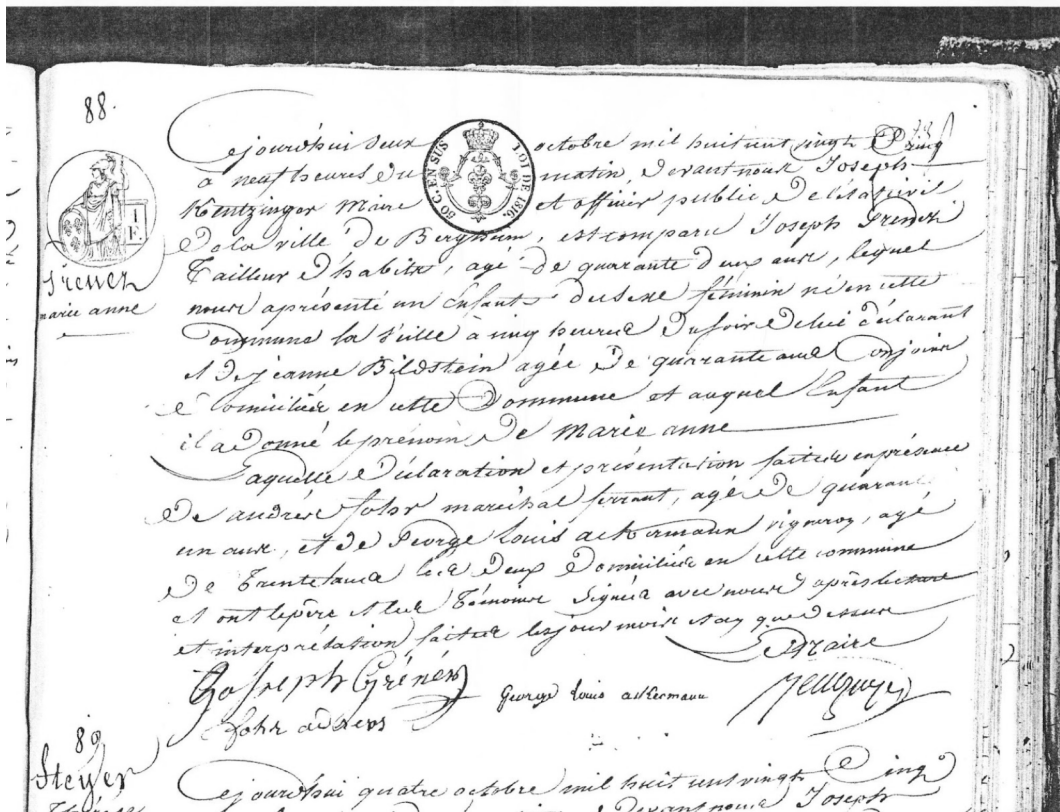 88.
Cejourd'hui deux octobre mil huit cent vingt Cinq
a neuf heures du matin, devant nous Joseph
Kentzinger Maire et officier public de l'état civil
de la ville de Bergheim, est comparu Joseph
Tailleur d'habits, agé de quarante deux ans, lequel
nous a présenté un Enfant du sexe féminin né en cette
Commune la veille à cinq heures du soir de lui déclarant
et de jeanne Bildstein agée de quarante ans Conjoints
domiciliés en cette Commune et auquel Enfant
il a donné le prénom de Marie anne
Laquelle déclaration et présentation faites en présence
de andrés fohr maréchal ferrant, agé de quarante
un ans, et de George Louis ackermann vigneron, agé
de trente ans les deux domiciliés en cette commune
et ont le père et les témoins signés avec nous après lecture
et interprétation faites les jour mois et an que dessus
Maire
30 C. EN SUS
LOI DE 1816.
marie anne
Joseph Grénér
George Louis ackermann
fohr
89
Steyer
Cejourd'hui quatre octobre mil huit cent vingt Cinq
devant nous Joseph